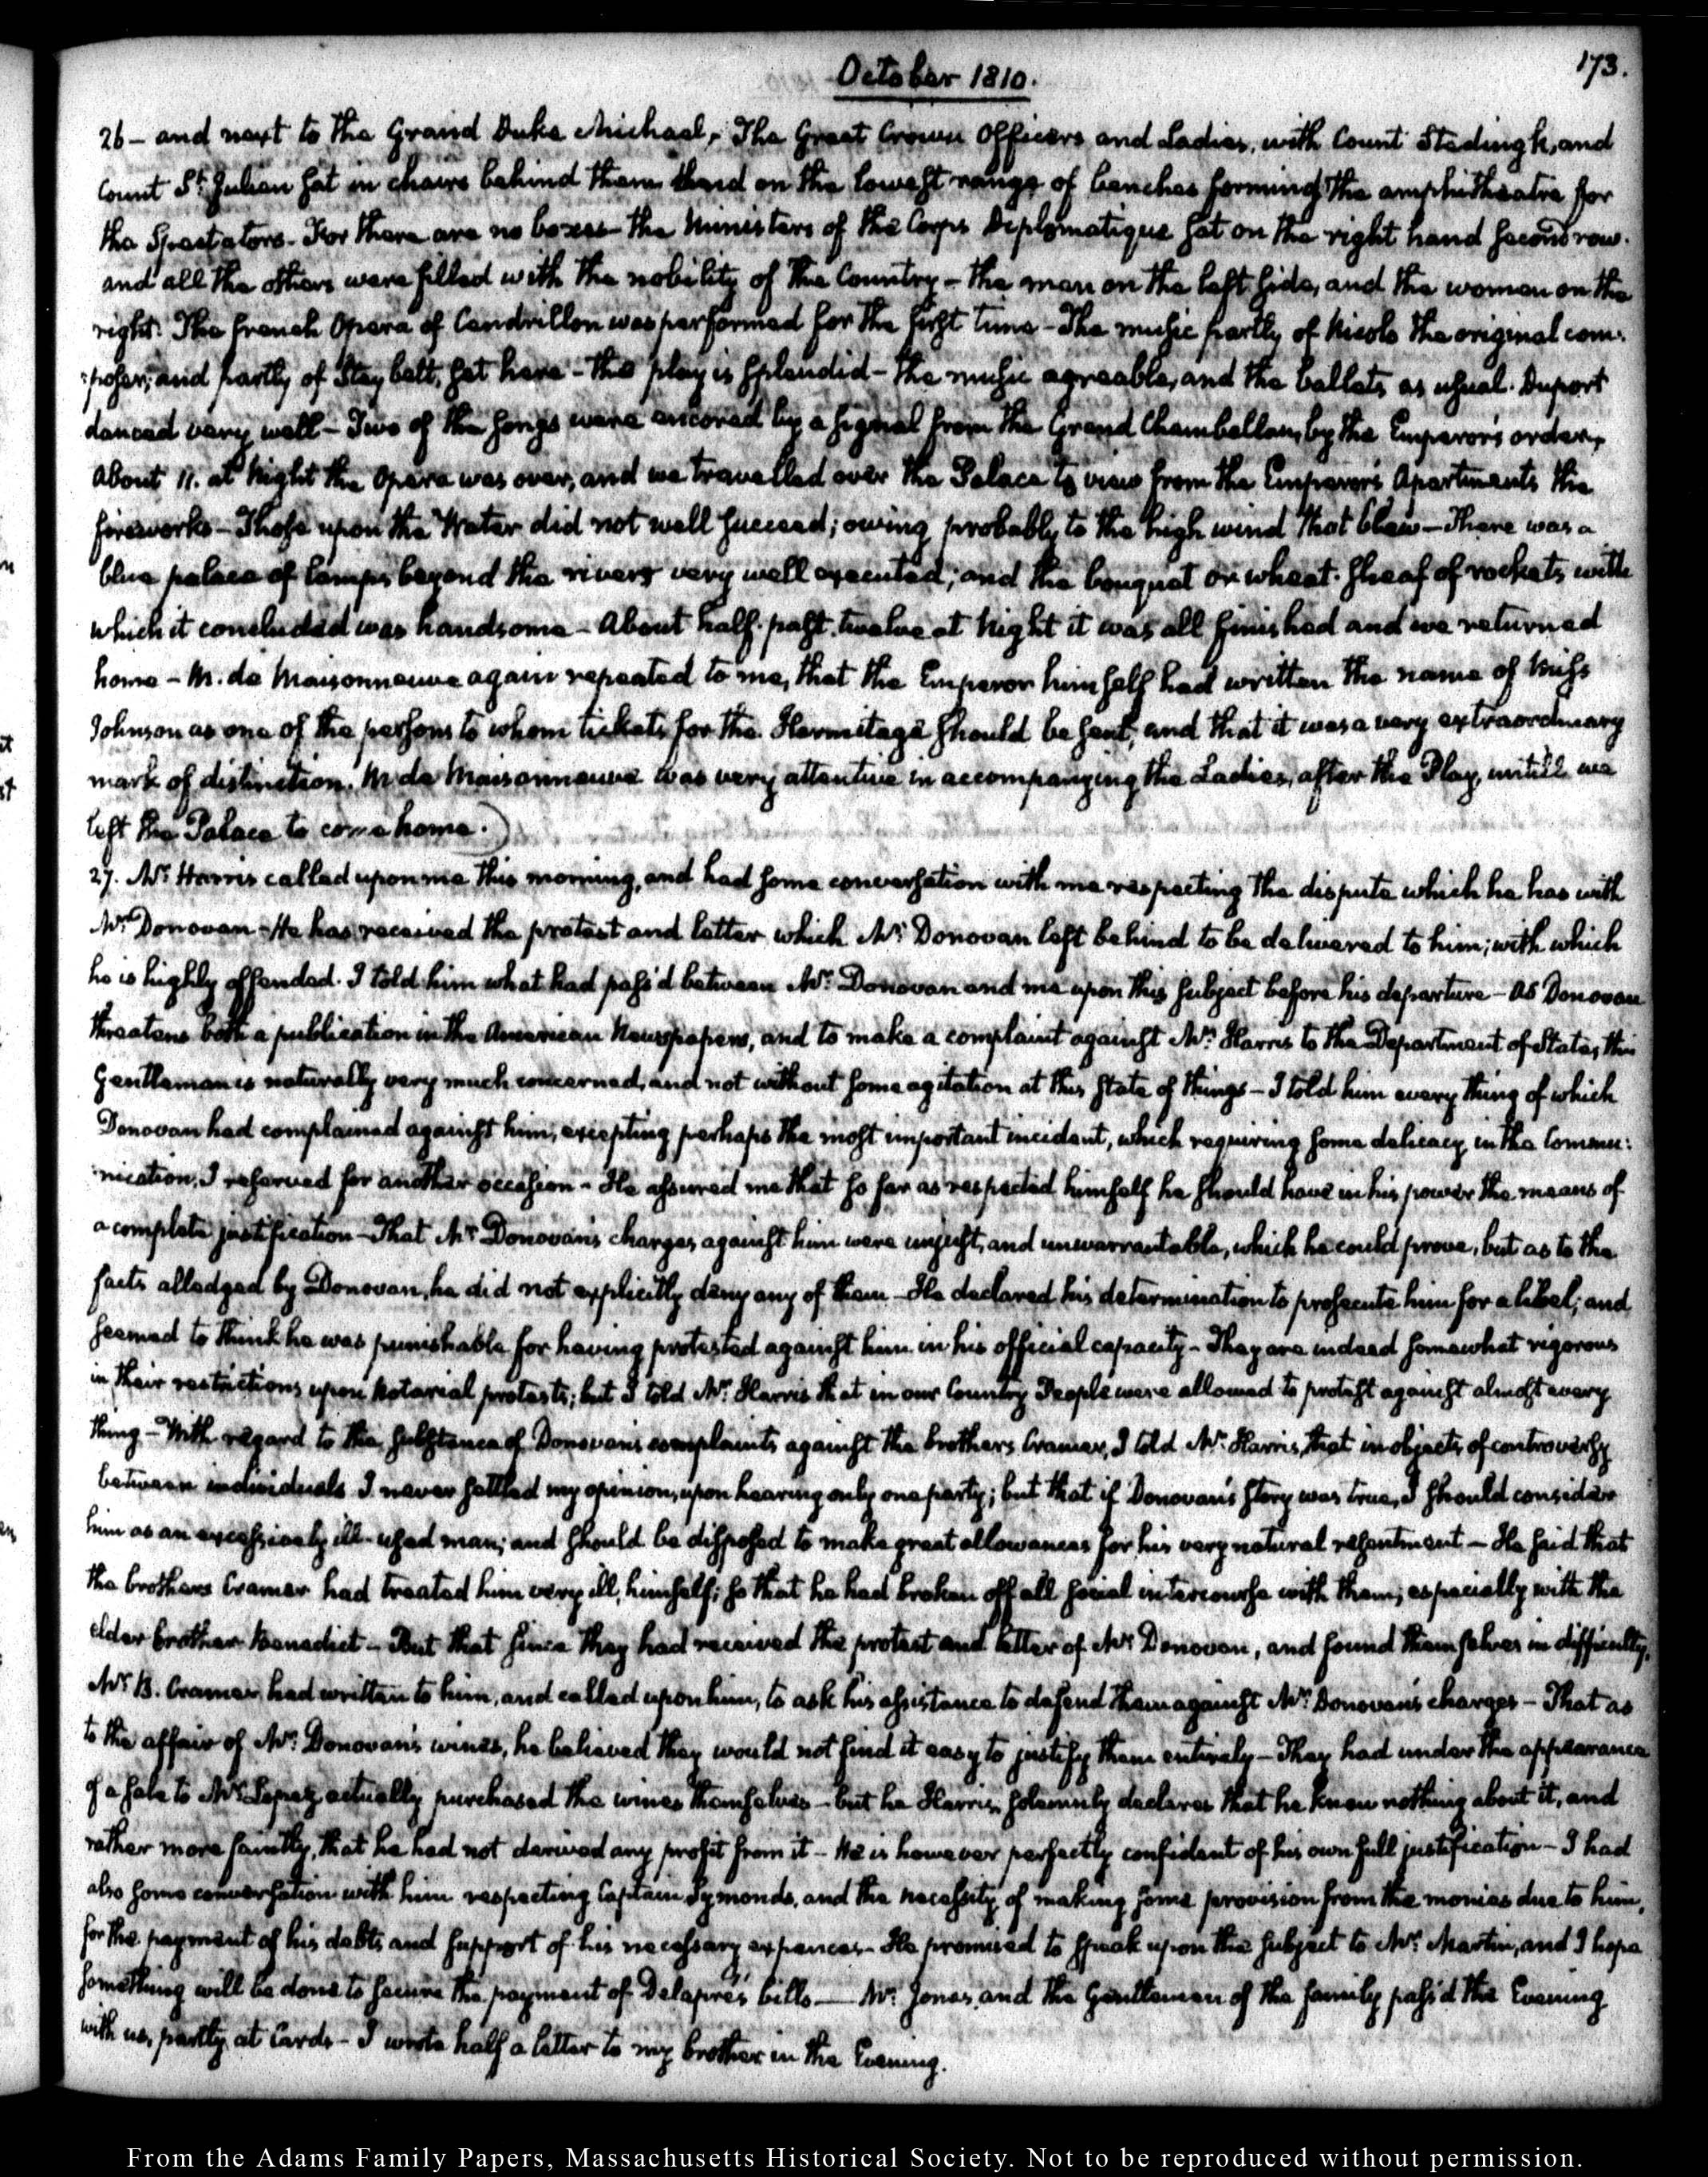 October 1810.
173.
26 — and next to the Grand Duke Michael, The Great Crown Officers and Ladies, with Count Stedingk, and
Count St. Julien sat in chairs behind them and on the lowest range of benches forming the amphitheatre for
the Spectators — For there are no boxes — the Ministers of the Corps Diplomatique sat on the right hand second row.
and all the others were filled with the nobility of the Country — the men on the left side, and the women on the
right. The french Opera of Cendrillon was performed for the first time — The music partly of Nicolo the original com-
-poser, and partly of Steybelt, set here — the play is splendid — the music agreeable, and the ballets as usual. Duport
danced very well — Two of the songs were encored by a signal from the Grand Chambellan, by the Emperor's order,
about 11. at Night the Opera was over, and we travelled over the Palace to view from the Emperor's Apartments the
fireworks — Those upon the Water did not well succeed; owing probably to the high wind that blew — There was a
blue palace of lamps beyond the river very well executed; and the bouquet or wheat-sheaf of rockets with
which it concluded was handsome — About half-past twelve at Night it was all finished and we returned
home — M. de Maisonneuve again repeated to me, that the Emperor himself had written the name of Miss
Johnson as one of the persons to whom tickets for the Hermitage should be sent, and that it was a very extraordinary
mark of distinction. M de Maisonneuve was very attentive in accompanying the Ladies, after the Play, untill we
left the Palace to come home.)
27. Mr. Harris called upon me this morning, and had some conversation with me respecting the dispute which he has with
Mr Donovan — He has received the protest and letter which Mr. Donovan left behind to be delivered to him; with which
he is highly offended. I told him what had pass'd between Mr. Donovan and me upon this subject before his departure — As Donovan
threatens both a publication in the American Newspapers, and to make a complaint against Mr. Harris to the Department of State, this
Gentleman is naturally very much concerned, and not without some agitation at this state of things — I told him every thing of which
Donovan had complained against him, excepting perhaps the most important incident, which requiring some delicacy in the Commu-
-nication, I reserved for another occasion — He assured me that so far as respected himself he should have in his power the means of
a complete justification — That Mr Donovan's charges against him were unjust, and unwarrantable, which he could prove, but as to the
facts alledged by Donovan, he did not explicitly deny any of them — He declared his determination to prosecute him for a libel; and
seemed to think he was punishable for having protested against him in his official capacity — They are indeed somewhat rigorous
in their restrictions upon Notarial protests; but I told Mr. Harris that in our Country People were allowed to protest against almost every
thing — With regard to the substance of Donovan's complaints against the brothers Cramer, I told Mr. Harris, that in objects of controversy
between individuals I never settled my opinion, upon hearing only one party; but that if Donovan's story was true, I should consider
him as an excessively ill-used man; and should be disposed to make great allowances for his very natural resentment — He said that
the brothers Cramer had treated him very ill, himself; so that he had broken off all social intercourse with them; especially with the
elder brother Benedict — But that since they had received the protest and letter of Mr Donovan, and found themselves in difficulty,
Mr B. Cramer had written to him, and called upon him, to ask his assistance to defend them against Mr. Donovan's charges — That as
to the affair of Mr. Donovan's wines, he believed they would not find it easy to justify them entirely — They had under the appearance
of a sale to Mr Lopez actually purchased the wines themselves — but he Harris, solemnly declares that he knew nothing about it, and
rather more faintly, that he had not derived any profit from it — He is however perfectly confident of his own full justification — I had
also some conversation with him respecting Captain Symonds, and the necessity of making some provision from the monies due to him,
for the payment of his debts and support of his necessary expences — He promised to speak upon the subject to Mr. Martin, and I hope
something will be done to secure the payment of Delapré's bills — Mr. Jones, and the Gentlemen of the family pass'd the Evening
with us, partly at Cards — I wrote half a letter to my brother in the Evening.
From the Adams Family Papers, Massachusetts Historical Society. Not to be reproduced without permission.